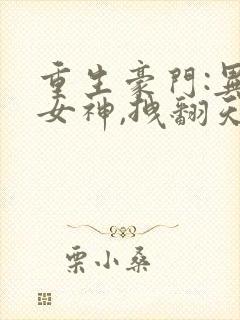 重生豪門:異
女神,拽翻天
栗小桑